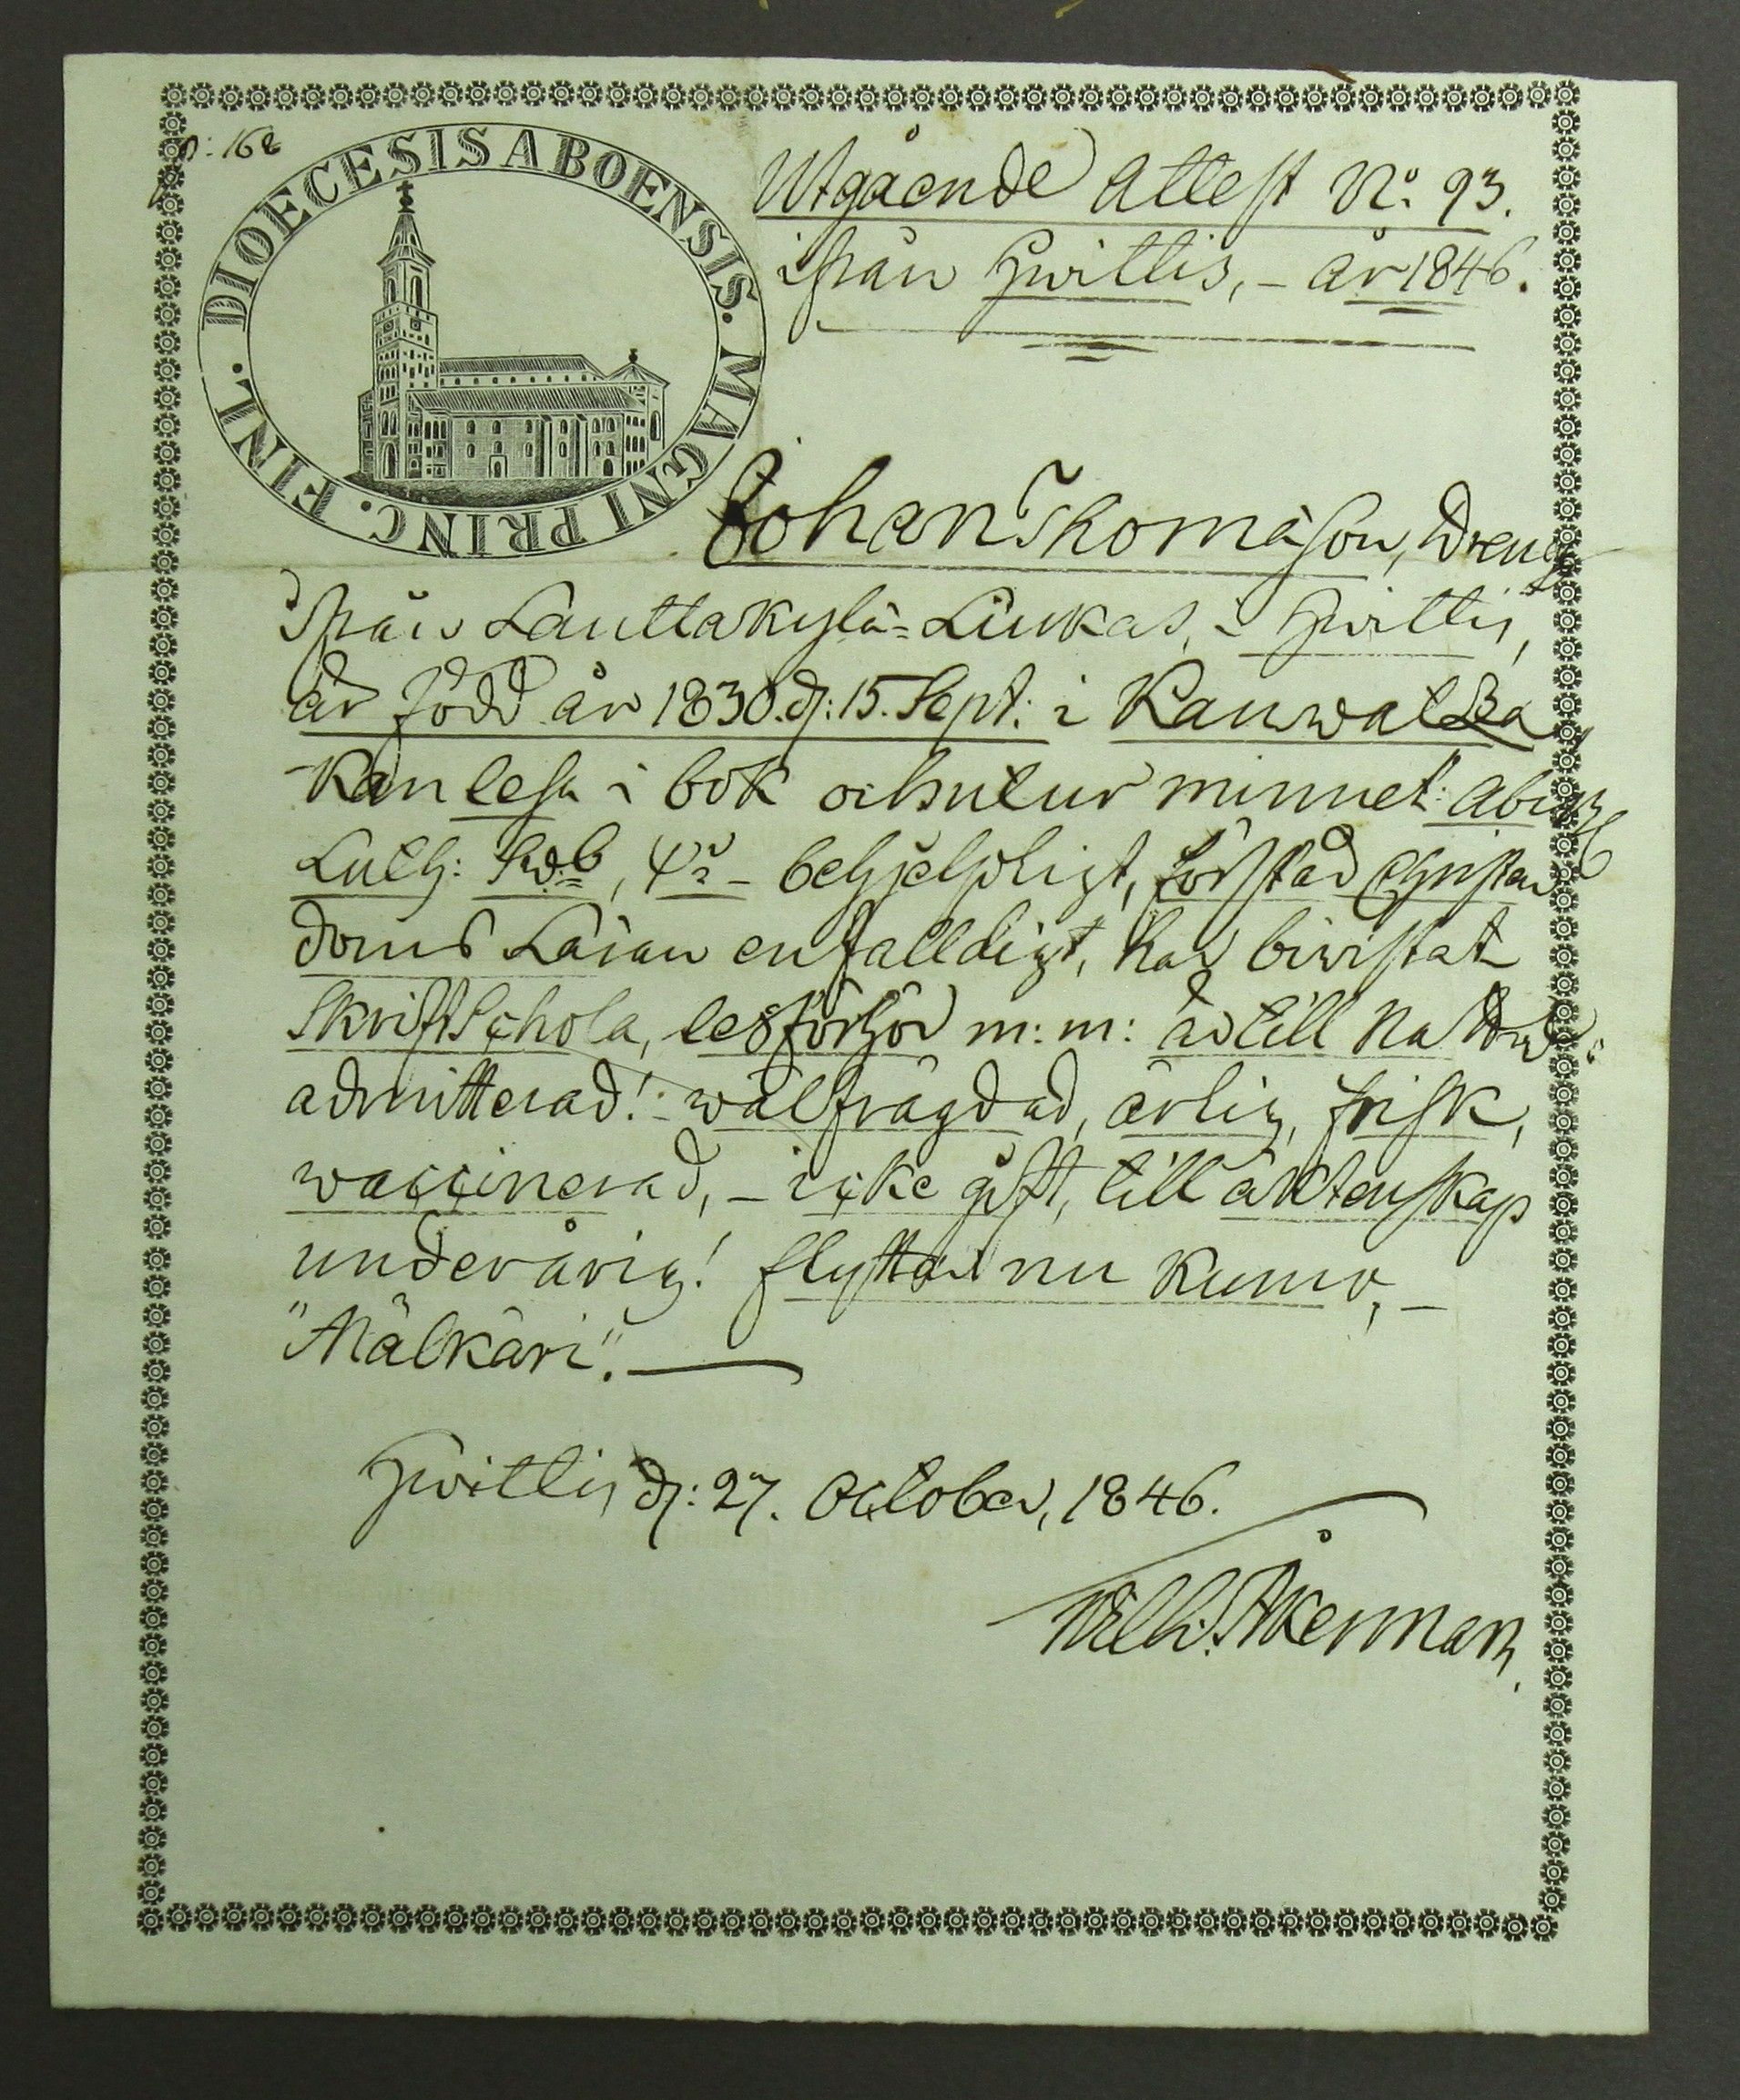 N: 162
DIOECESIS ABOENSIS. MAGNI PRINC. FINL.
Utgående Attest No. 93.
ifrån Hwittis, – år 1846.
Johan Thomasson, Dreng
ifrån Lauttakylä = Liukas, i Hwittis,
är född år 1830. d: 15. Sept: i Kauwatsa
kan lesa i bok och utur minnet: Abcb
Luth: , – behjelpligt, förstår Christen
doms Läran enfalldigt, har biwistat
Skriftschola, lesförhör m: m: är till Na
admitterad! – wälfrägdad, ärlig, frisk,
waccinerad, – icke gift, till äktenskap
underårig! flyttar nu Kumo, –
"Mälkäri". –
Hwittis d: 27. October, 1846.
Wilh. Åkerman